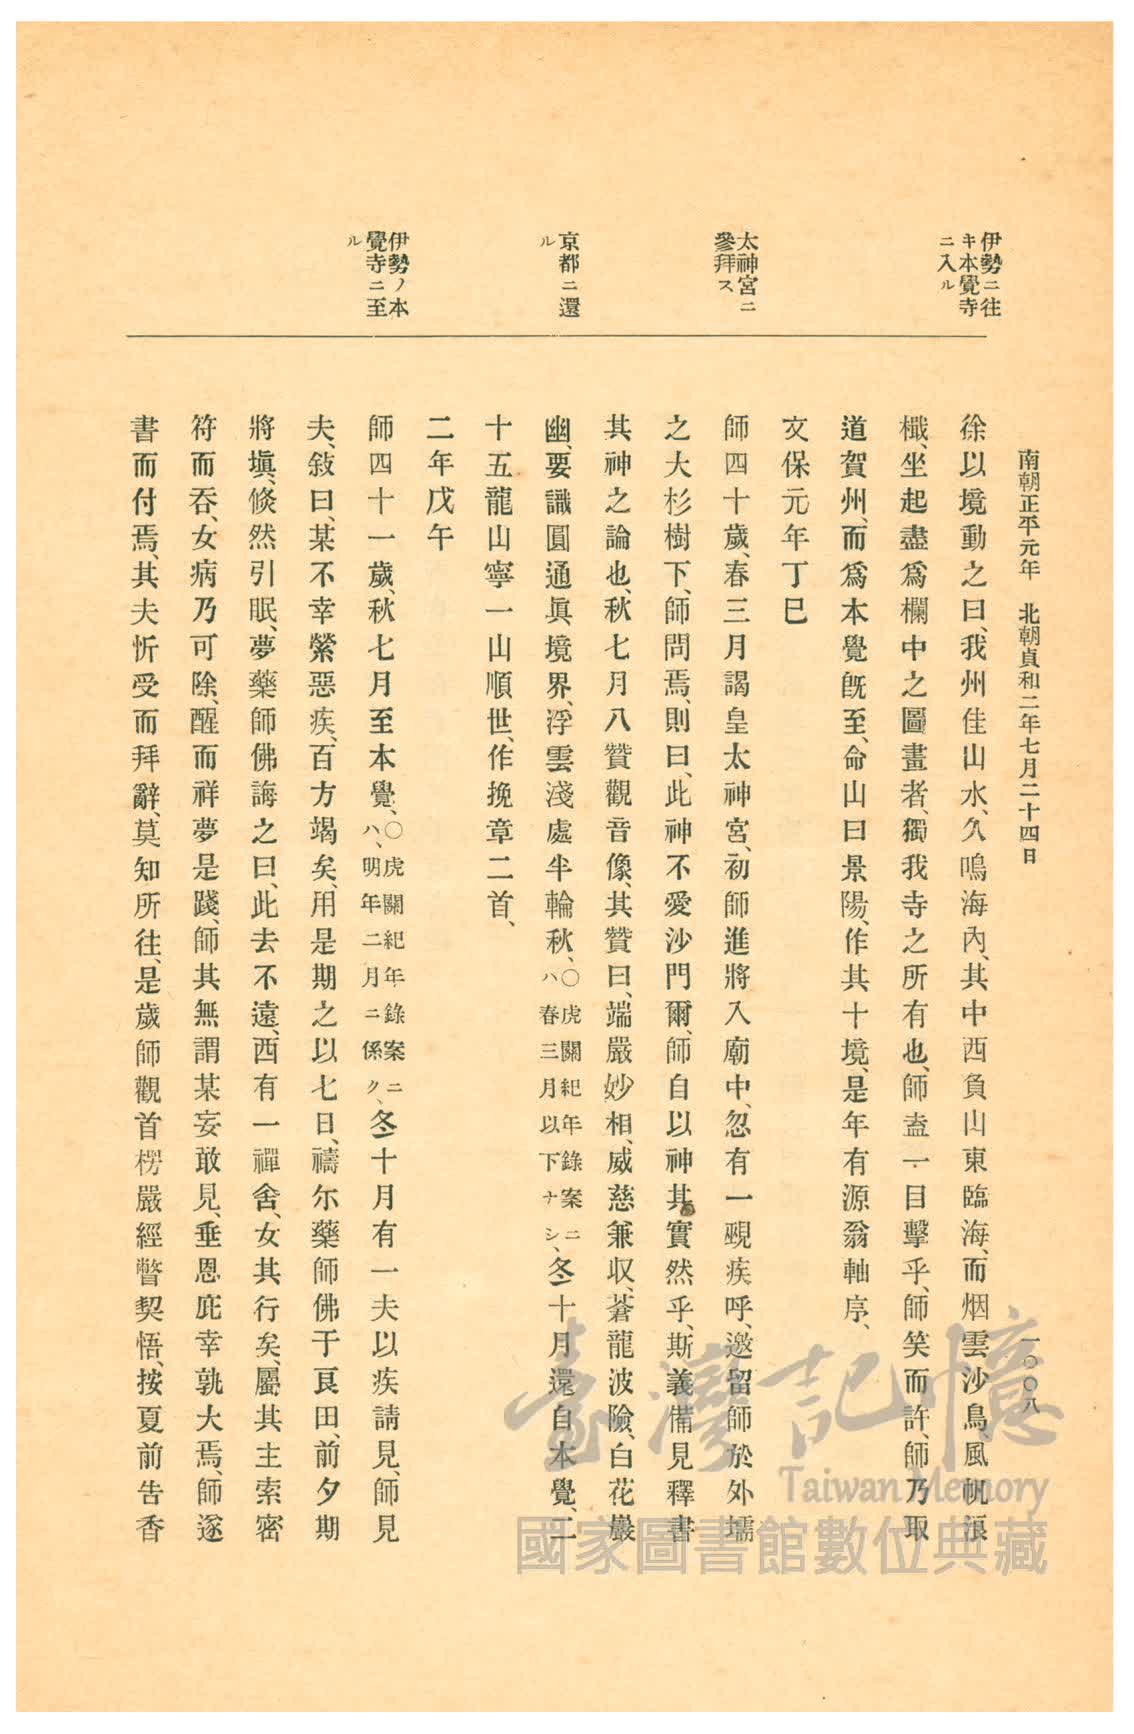 南朝正平元年　北朝貞和二年七月二十四日
一〇〇八
伊勢ニ往
キ本覺寺
ニ入ル
太神宮ニ
參拜ス
京都ニ還
ル
伊勢ノ本
覺寺ニ至
ル
徐以境動之曰、我州佳山水、久鳴海內、其中西負山東臨海、而烟雲沙鳥、風帆浪
檝、坐起盡爲欄中之圖畫者、獨我寺之所有也、師盍一目擊乎、師笑而許、師乃取
道賀州、而爲本覺旣至、命山曰景陽、作其十境、是年有源翁軸序、
文保元年丁巳
師四十歲、春三月謁皇太神宮、初師進將入廟中、忽有一覡疾呼、邀留師於外壖
之大杉樹下、師問焉、則曰、此神不愛沙門爾、師自以神其實然乎、斯義備見釋書
其神之論也、秋七月八贊觀音像、其贊曰、端嚴妙相、威慈兼収、蒼龍波險、白花巖
幽、要識圓通眞境界、浮雲淺處半輪秋、〇虎關紀年錄案ニハ春三月以下ナシ、冬十月還自本覺、二
十五龍山寧一山順世、作挽章二首、
二年戊午
師四十一歲、秋七月至本覺、〇虎關紀年錄案ニハ、明年二月ニ係ク、冬十月有一夫以疾請見、師見
夫、敍曰、某不幸縈惡疾、百方竭矣、用是期之以七日、禱尓藥師佛于艮田、前夕期
將塡、倐然引眠、夢藥師佛誨之曰、此去不遠、西有一禪舍、女其行矣、屬其主索密
符而吞、女病乃可除、醒而祥夢是踐、師其無謂某妄敢見、垂恩庇幸孰大焉、師遂
書而付焉、其夫忻受而拜辭、莫知所往、是歲師觀首楞嚴經瞥契悟、按夏前告香
臺灣記憶
Taiwan Memory
國家圖書館數位典藏